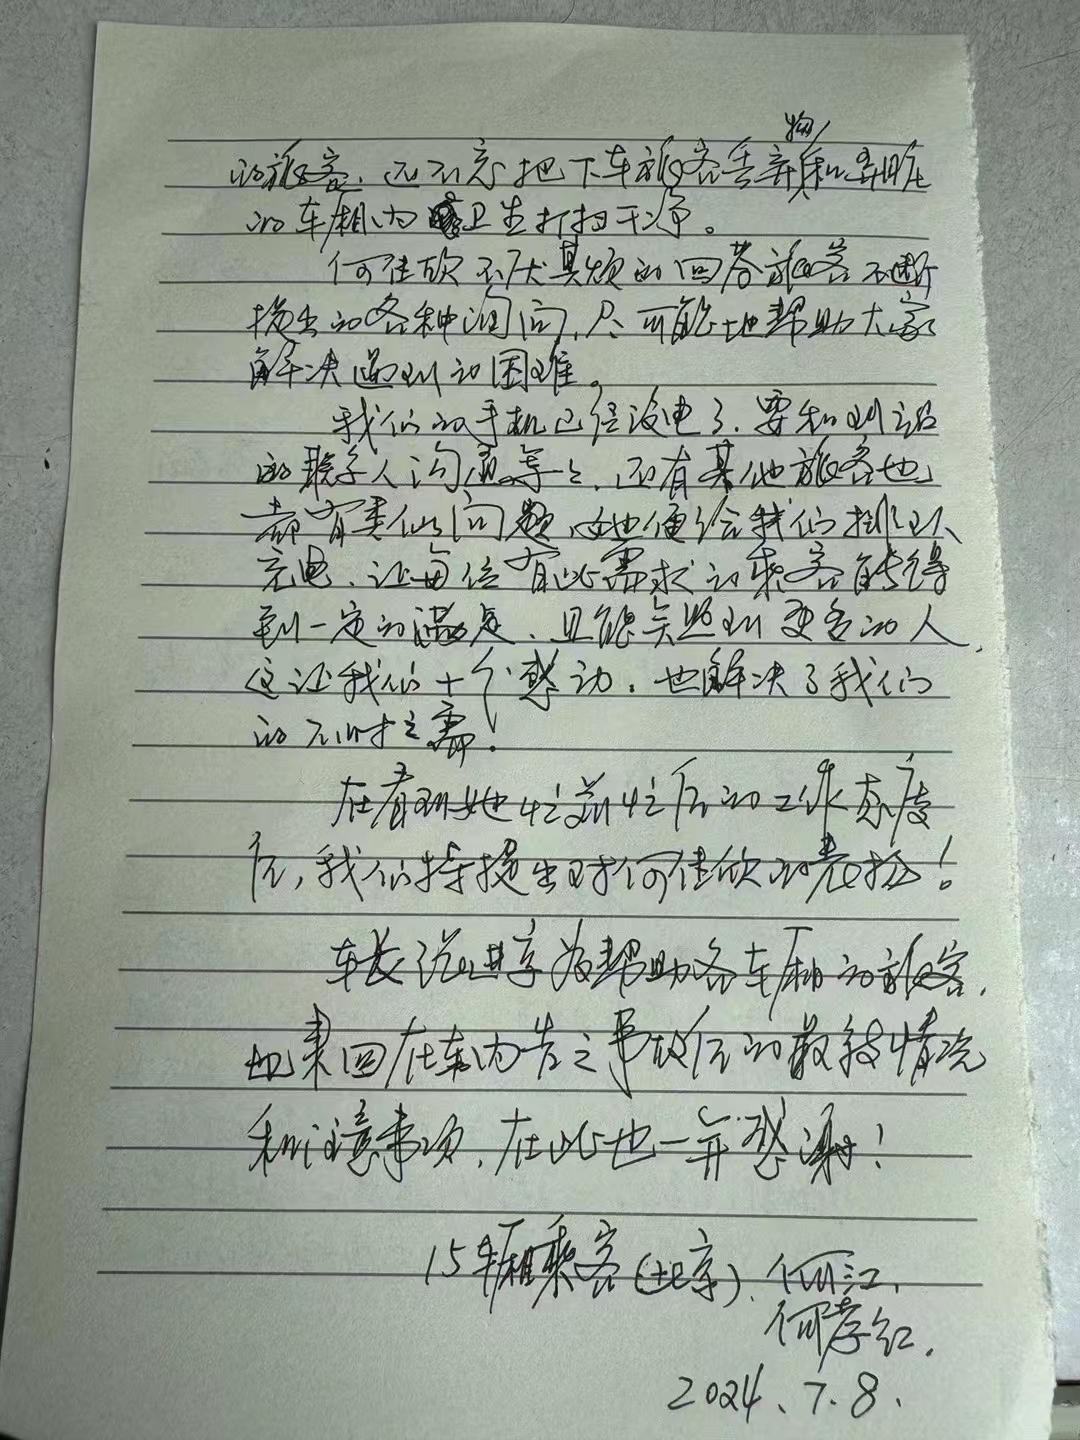 的旅客，还不忘把下车旅客丢弃物和弄脏
的车厢内卫生打扫干净。
何佳欣不厌其烦的回答旅客不断
提出的各种询问，尽可能地帮助大家
解决遇到的困难。
我们的手机已经没电了，要和到站
的联系人沟通等等，还有其他旅客也
都有类似问题，她便给我们排队
充电，让每位有此需求的乘客能得
到一定的满足，且能兼顾到更多的人，
这让我们十分感动，也解决了我们
的不时之需！
在看到她忙前忙后的工作态度
后，我们特提出对何佳欣的表扬！
车长 进京为帮助各车厢的旅客，
回在车内告之事故后的最终情况
和注意事项，在此也一并感谢！
15车厢乘客（北京）何江，
何孝红，
2024.7.8.